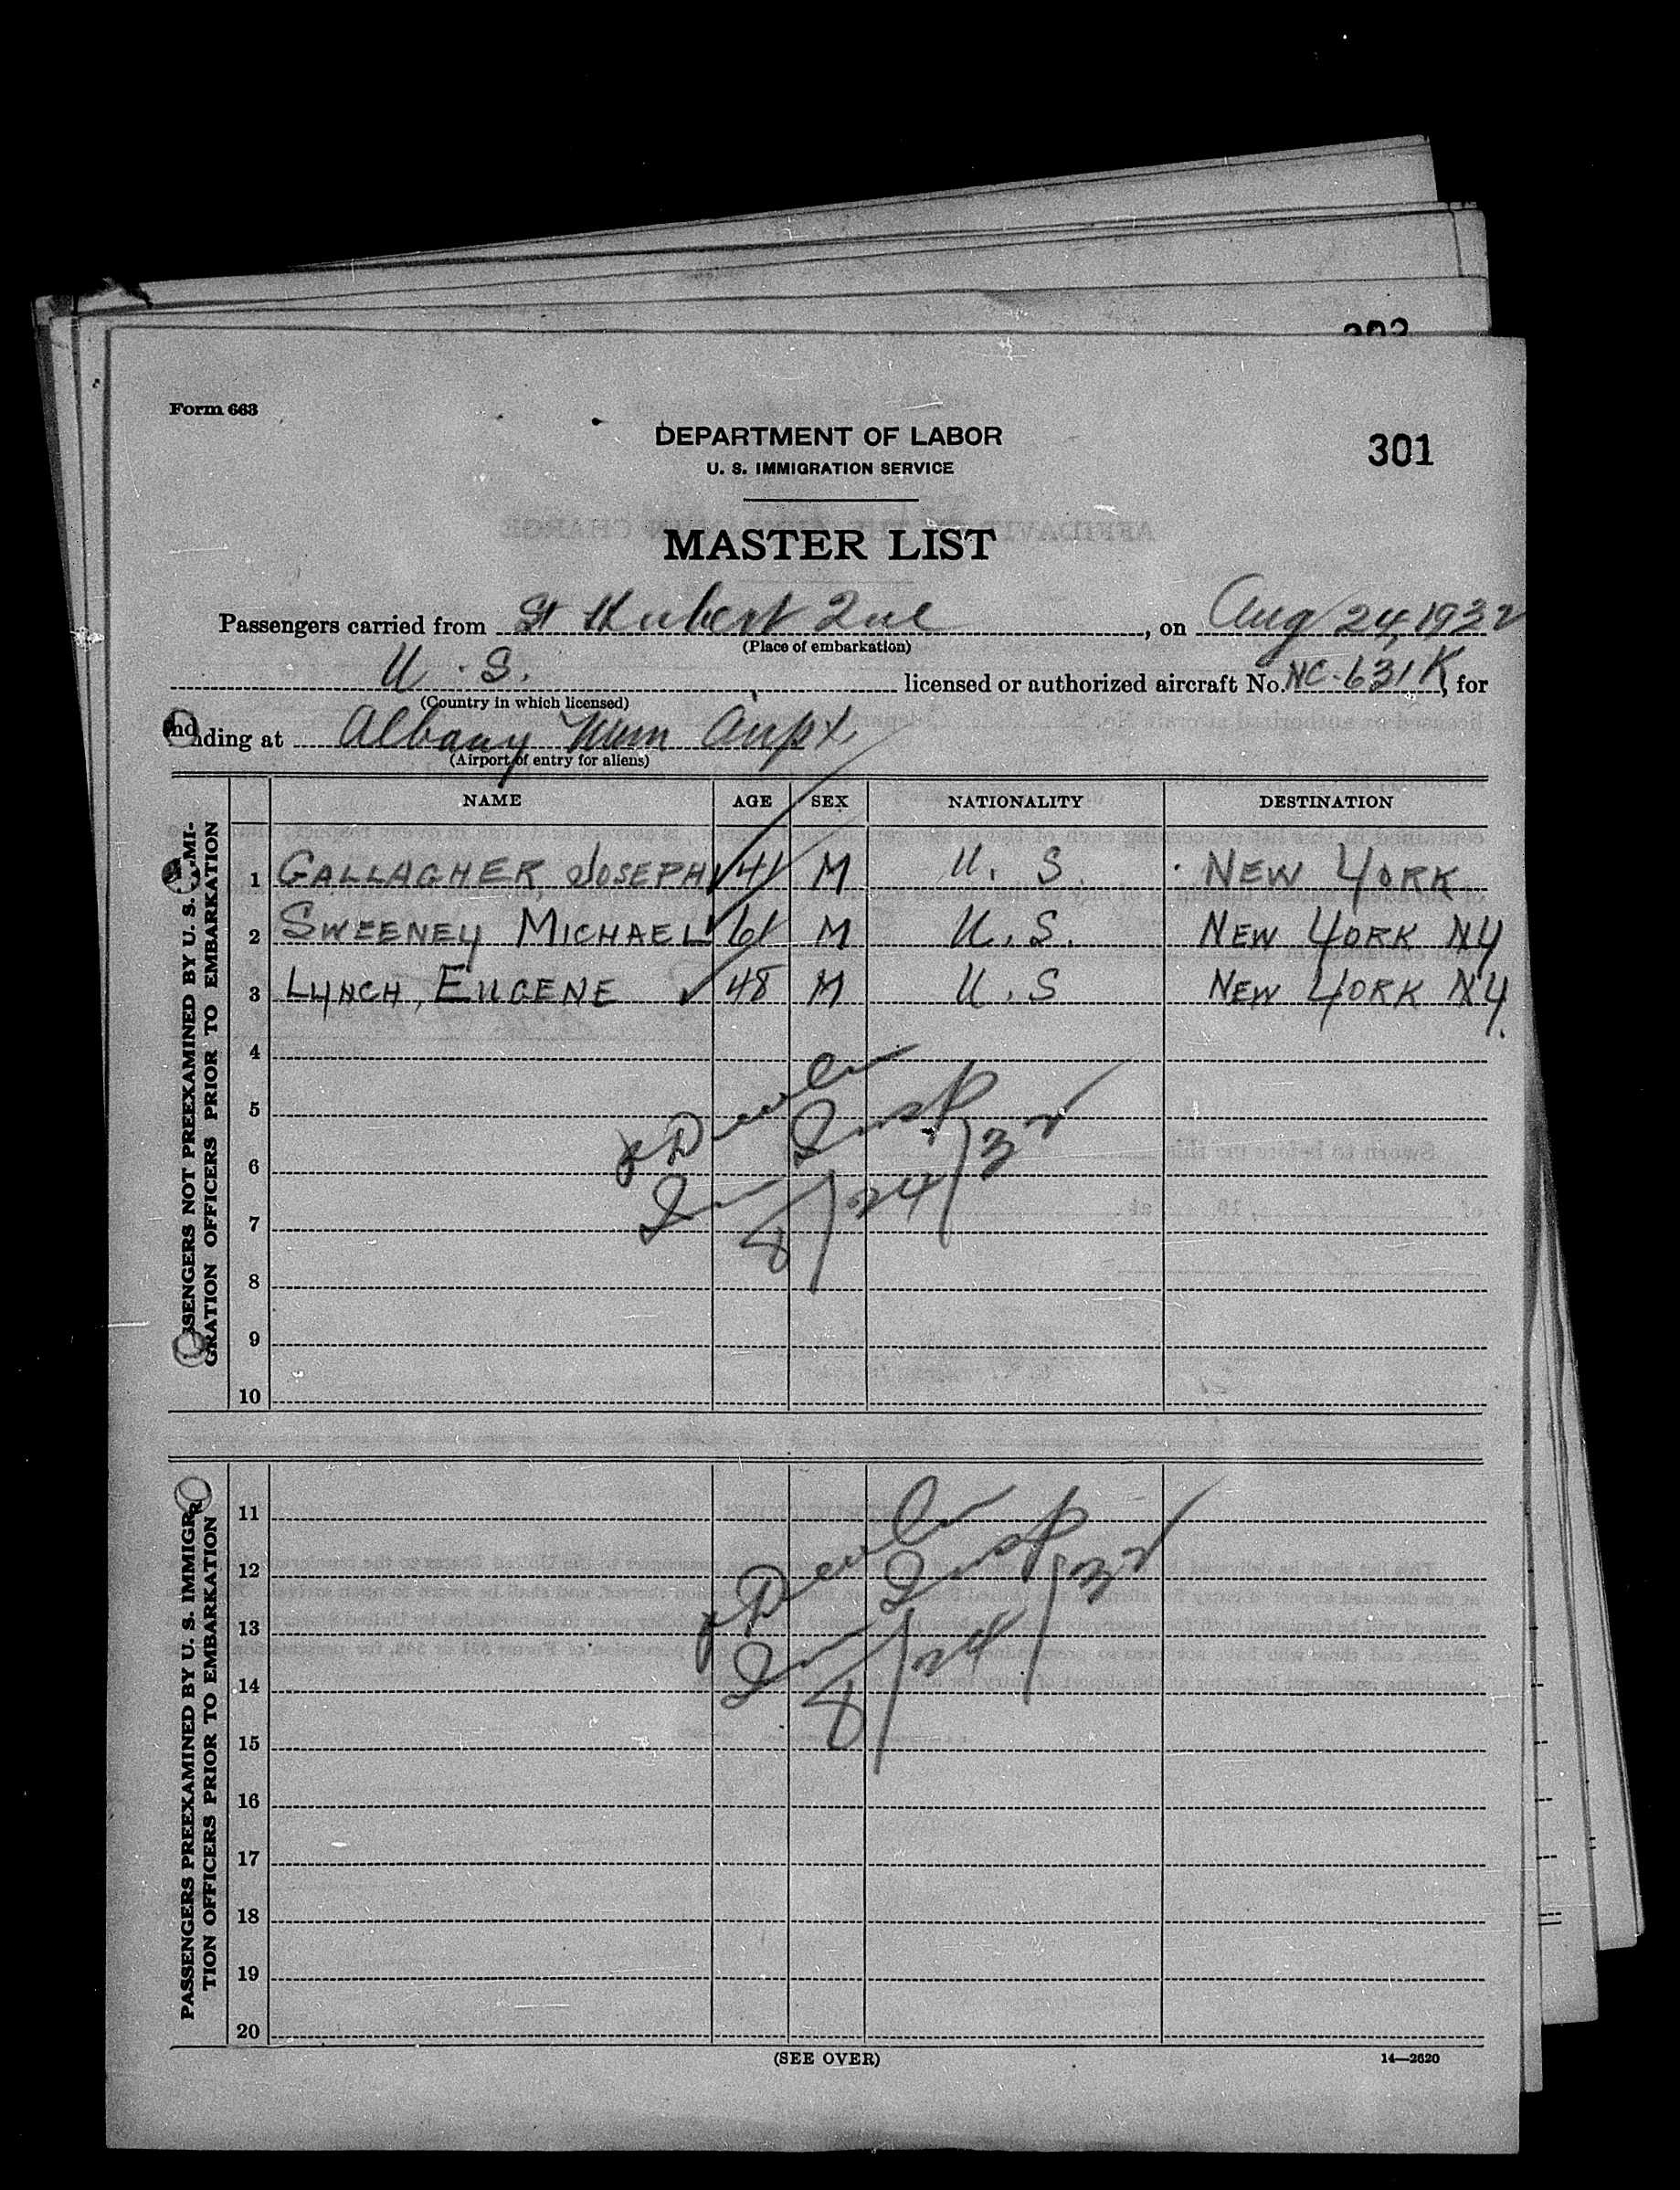 Form 663
DEPARTMENT OF LABOR
301
U. S. IMMIGRATION SERVICE
MASTER LIST
Passengers carried from St Hubert Que, on Aug 24, 1932
(Place of embarkation)
U. S. licensed or authorized aircraft No. NC-631K, for
(Country in which licensed)
nding at Albany Mun Airpt
(Airport of entry for aliens)
NAME AGE SEX NATIONALITY DESTINATION
SSENGERS NOT PREEXAMINED BY U. S. IMMI-
GRATION OFFICERS PRIOR TO EMBARKATION
1 GALLAGHER, JOSEPH 41 M U. S. NEW YORK
2 SWEENEY MICHAEL 61 M U. S. NEW YORK NY
3 LYNCH, EUGENE 48 M U. S NEW YORK NY.
4
5
6
7
8
9
10
Insp
8/24/32
PASSENGERS PREEXAMINED BY U. S. IMMIGRA
TION OFFICERS PRIOR TO EMBARKATION
11
12
13
14
15
16
17
18
19
20
Insp
8/24/32
(SEE OVER)
14—2620